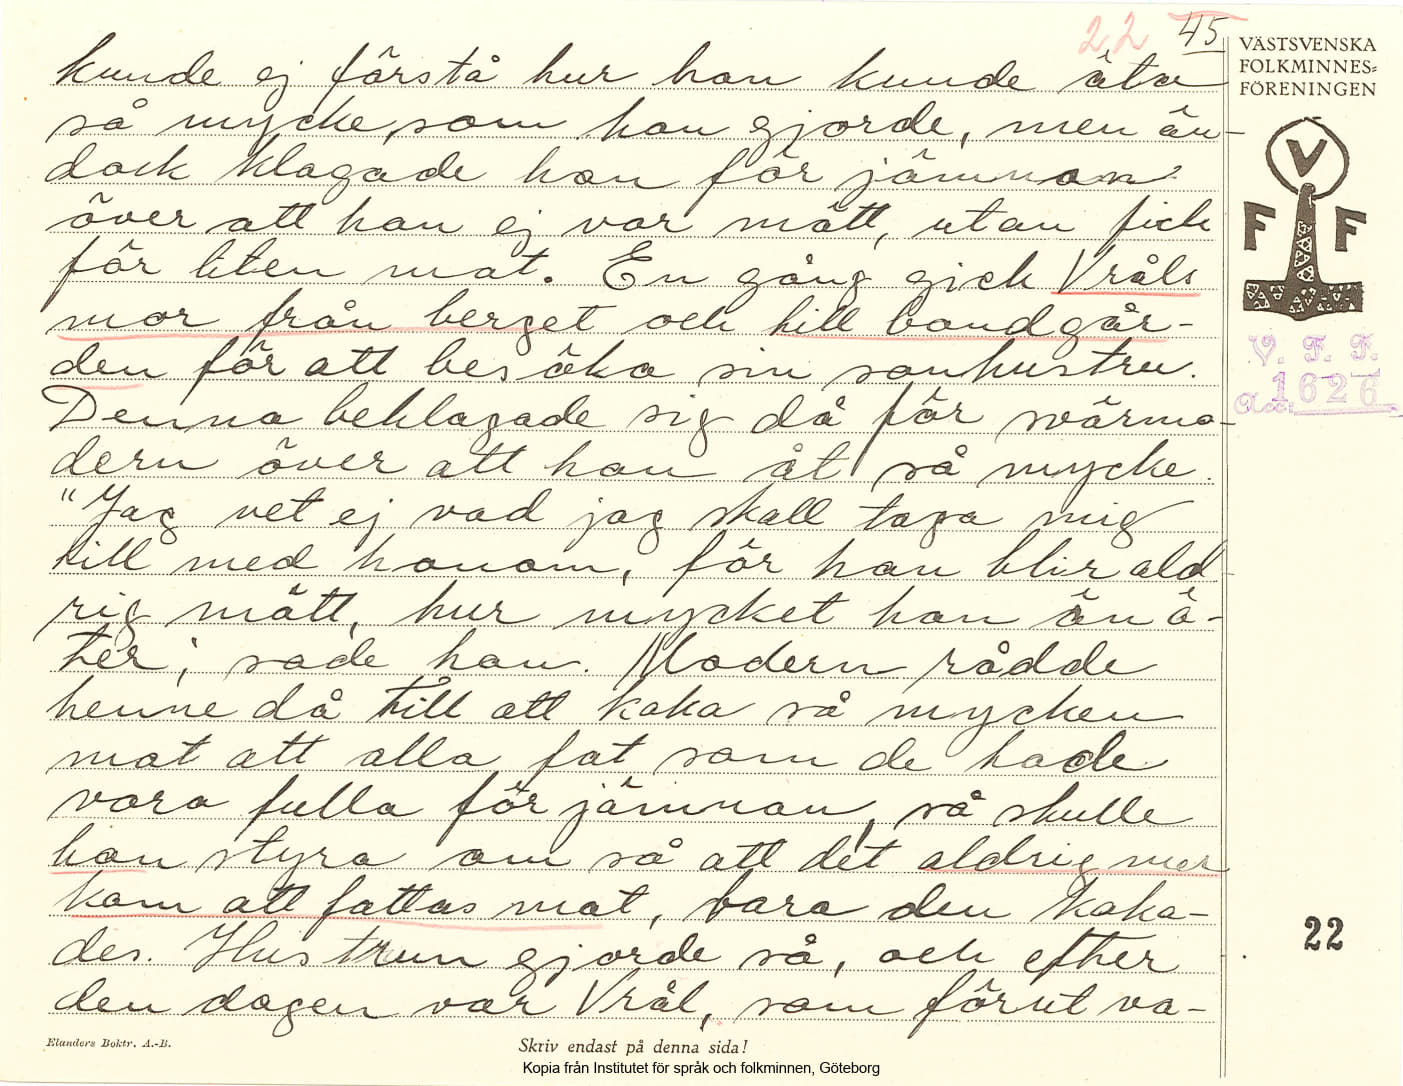 22 45
VÄSTSVENSKA
FOLKMINNES=
FÖRENINGEN
kunde ej förstå hur han kunde äta
så mycke, som han gjorde, men än-
dock klagade han för jämnan
över att han ej var mätt, utan fick
för liten mat. En gång gick Vråls
mor från berget och till bondgår-
den för att besöka sin sonhustru.
Denna beklagade sig då för svärmo-
dern över att han åt så mycke.
"Jag vet ej vad jag skall taga mig
till med honom, för han blir ald-
rig mätt, hur mycket han än ä-
ter", sade hon. Modern rådde
henne då till att koka så mycken
mat att alla fat som de hade
voro fulla för jämnan, så skulle
hon styra om så att det aldrig mer
kom att fattas mat, bara den koka-
des. Hustrun gjorde så, och efter
den dagen var Vrål, som förut va-
V
F F
V. F. F.
Acc. 1626
22
Elanders Boktr. A.-B.
Skriv endast på denna sida!
Kopia från Institutet för språk och folkminnen, Göteborg